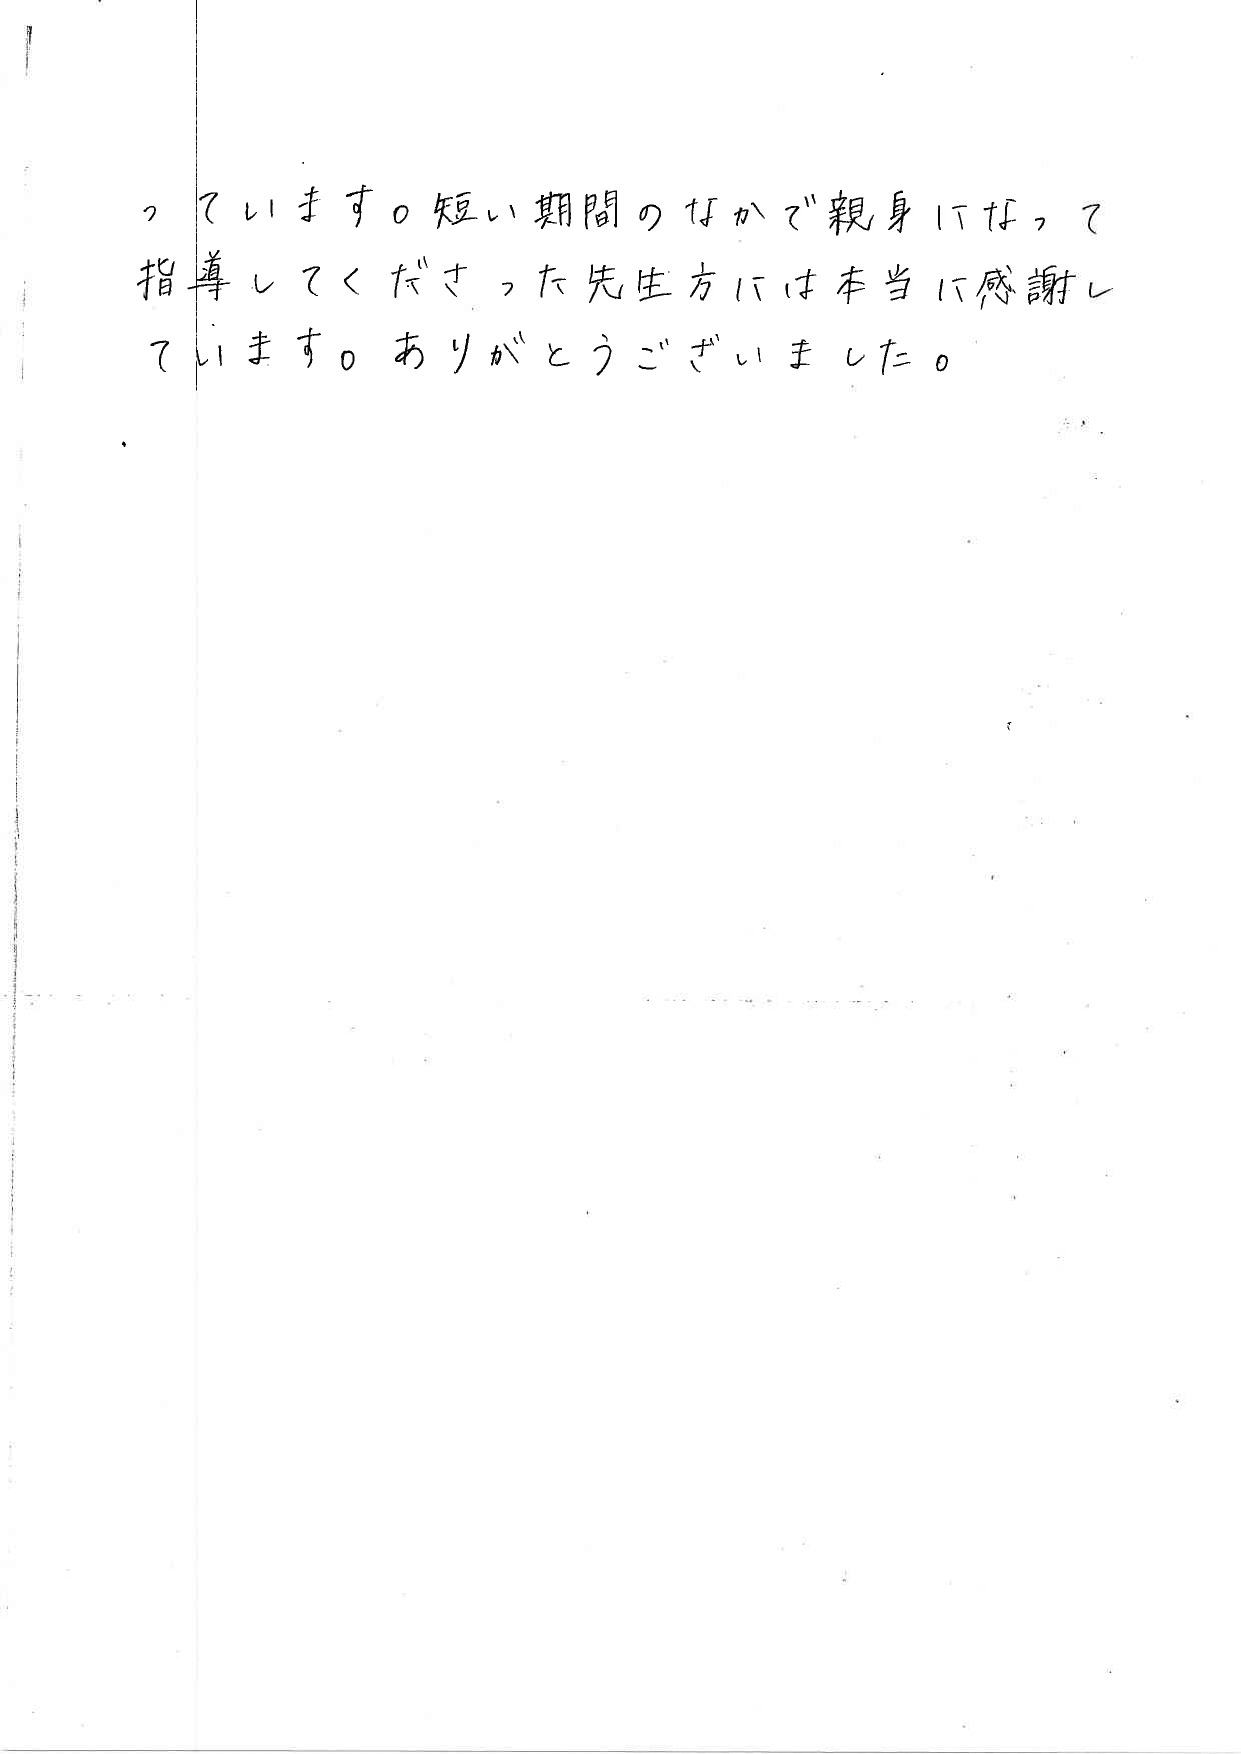 っています。短い期間のなかで親身になって
指導してくださった先生方には本当に感謝し
ています。ありがとうございました。